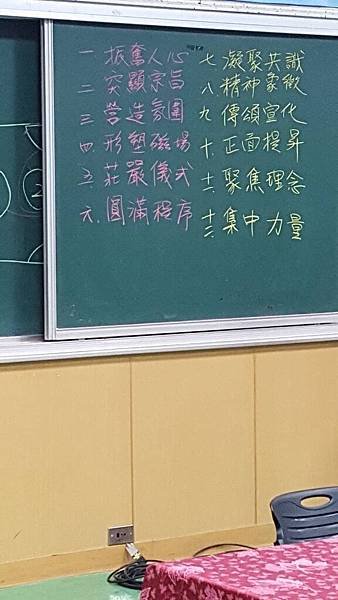 一 振奮人心
二 突顯宗旨
三 營造氛圍
四. 形塑磁場
五. 莊嚴儀式
六. 圓滿程序
七 凝聚共識
八 精神象徵
九 傳頌宣化
十. 正面提昇
十一. 聚焦理念
十二. 集中力量